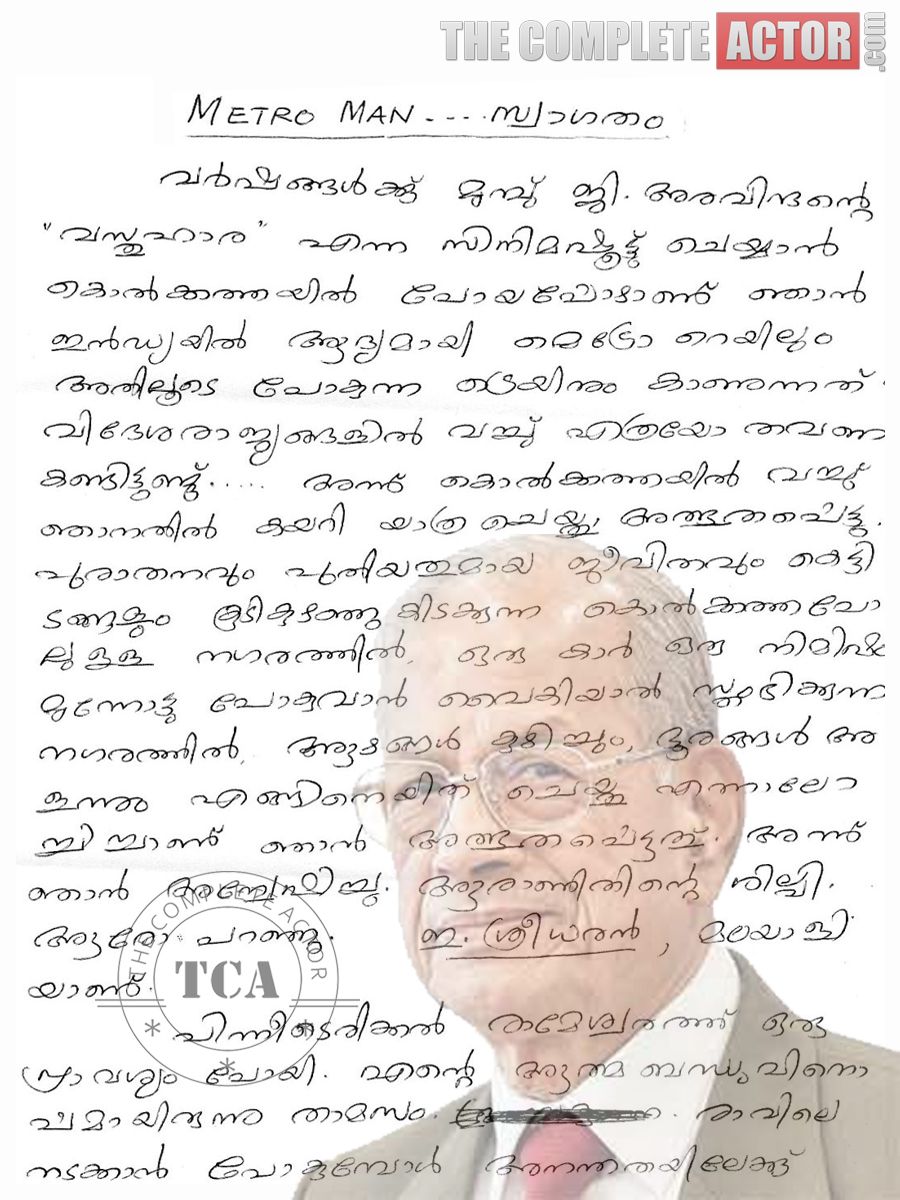 THE COMPLETE ACTOR .com
METRO MAN ---- സ്വാഗതം
വർഷങ്ങൾക്ക് മുമ്പ് ജി. അരവിന്ദന്റെ
"വാസ്തുഹാര" എന്ന സിനിമഷൂട്ട് ചെയ്യാൻ
കൊൽക്കത്തയിൽ പോയപ്പോഴാണ് ഞാൻ
ഇൻഡ്യയിൽ ആദ്യമായി മെട്രോ റെയിലും
അതിലൂടെ പോകുന്ന ട്രെയിനും കാണുന്നത്.
വിദേശരാജ്യങ്ങളിൽ വച്ച് എത്രയോ തവണ
കണ്ടിട്ടുണ്ട്..... അന്ന് കൊൽക്കത്തയിൽ വച്ച്
ഞാനതിൽ കയറി യാത്രചെയ്തു, അത്ഭുതപ്പെട്ടു.
പുരാതനവും പുതിയതുമായ ജീവിതവും കെട്ടി
ടങ്ങളും കൂടികുഴഞ്ഞുകിടക്കുന്ന കൊൽക്കത്തപോ
ലുളള നഗരത്തിൽ, ഒരു കാർ ഒരു നിമിഷം
മുന്നോട്ടു പോകുവാൻ വൈകിയാൽ സ്തംഭിക്കുന്ന
നഗരത്തിൽ, ആഴങ്ങൾ കുഴിച്ചും, ദൂരങ്ങൾ അ
ളന്നും എങ്ങിനെയിത് ചെയ്തു എന്നാലോ
ചിച്ചാണ് ഞാൻ അത്ഭുതപ്പെട്ടത്. അന്ന്
ഞാൻ അന്വേഷിച്ചു. ആരാണിതിന്റെ ശില്പി.
ആരോ പറഞ്ഞു. ഇ. ശ്രീധരൻ, മലയാളി
യാണ്.
പിന്നീടൊരിക്കൽ രാമേശ്വരത്ത് ഒരു
പ്രാവശ്യം പോയി. എന്റെ ആത്മ ബന്ധുവിനൊ
പ്പമായിരുന്നു താമസം. രാവിലെ
നടക്കാൻ പോകുമ്പോൾ അനന്തതയിലേക്ക്
THE COMPLETE ACTOR
TCA